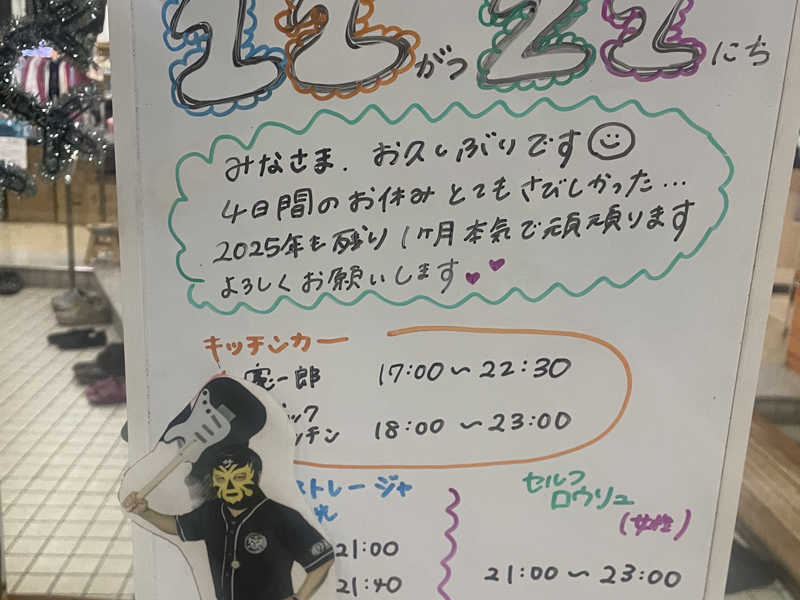 11がつ21にち
みなさま、お久しぶりです
4日間のお休みとてもさびしかった…
2025年も残り1ヶ月本気で頑頑ります
よろしくお願いします
キッチンカー
憲一郎 17:00～22:30
ック
ッチン 18:00～23:00
ストレージャ
光
21:00
21:40
セルフ
ロウリュ
(女性)
21:00～23:00